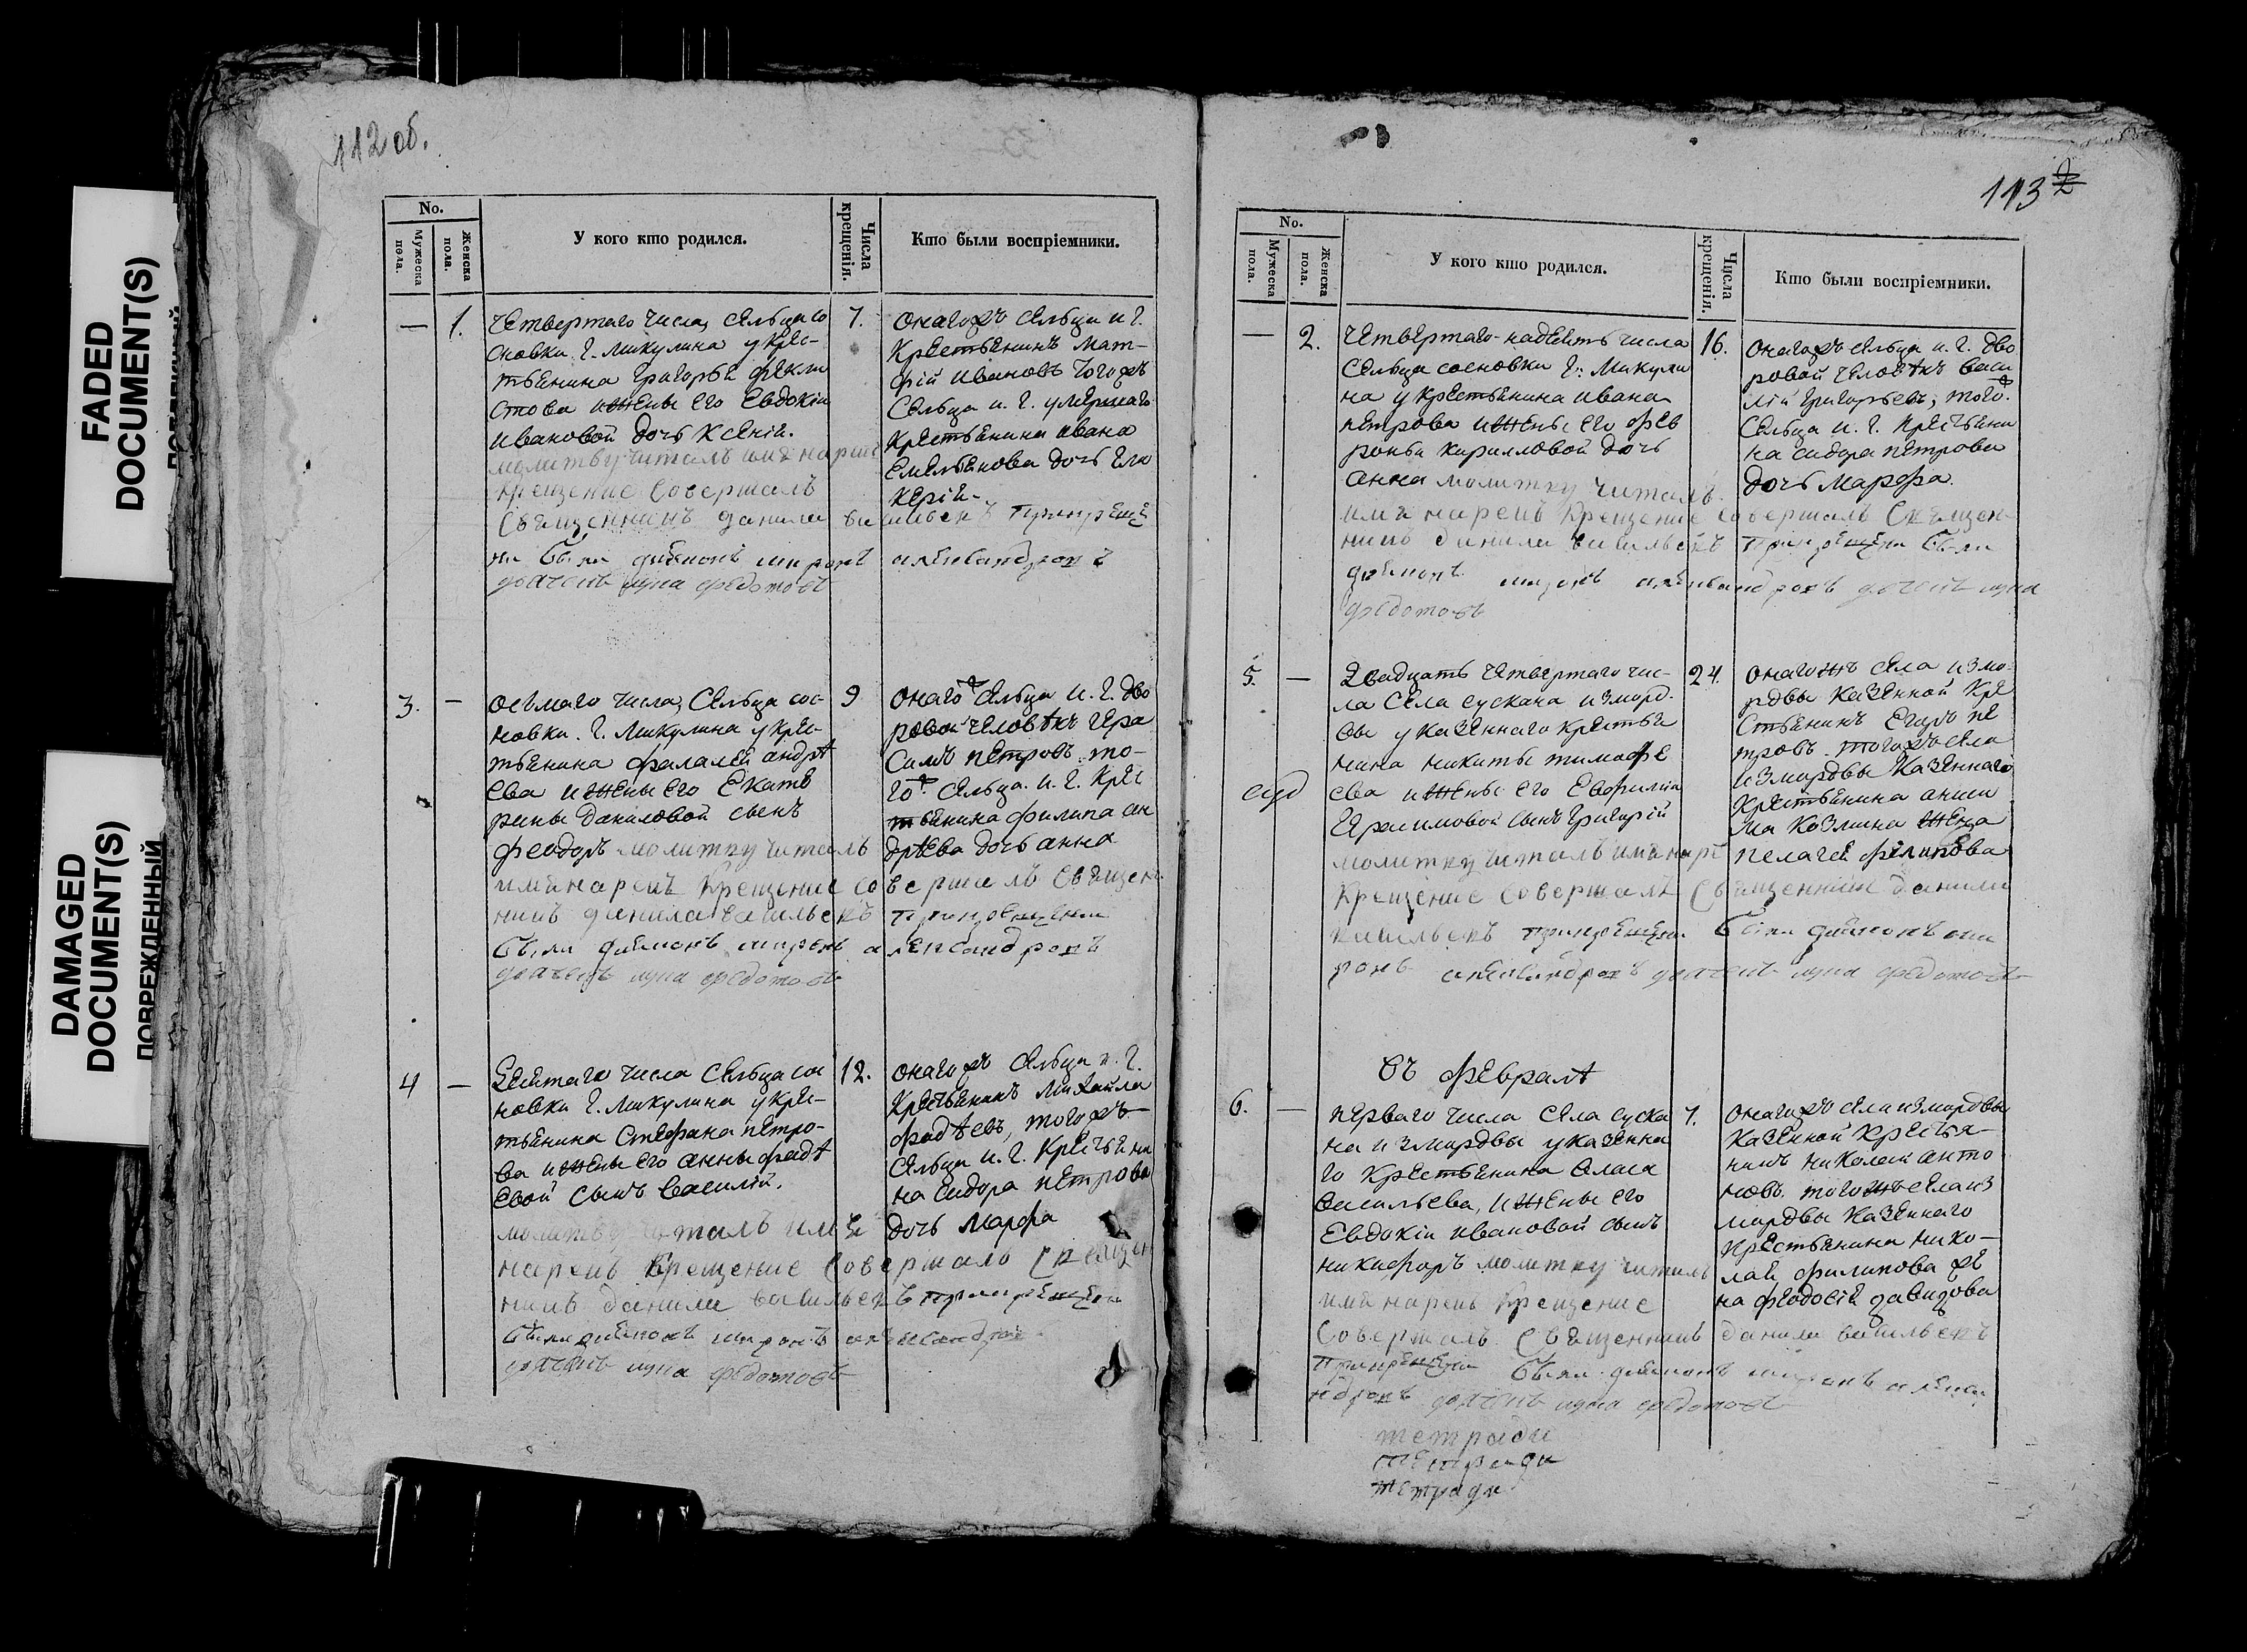 FADED
DOCUMENT(S)
DAMAGED
DOCUMENT(S)
ПОВРЕЖДЕННЫЙ
112 об.
No.
Мужеска пола.
Женска пола.
У кого кто родился.
Числа крещенія.
Кто были воспріемники.
— 1.
четвертаго числа, сельца со
сновки г. микулина у крес-
тьянина григорья фекли
стова и жены его Евдокіи
ивановой дочь ксенія.
молитву читалъ имя нарекъ
крещение совершалъ
священникъ данила васильевъ при крещении
были диаконъ миронъ александровъ
дьячекъ лука федотовъ
7.
онагожъ сельца и г.
крестьянинъ мат-
фій ивановъ тогожъ
сельца и. г. умершаго
крестьянина ивана
Емельянова дочь глик
керія-
3. —
осьмаго числа, сельца сос-
новки. г. микулина у крес-
тьянина фалалея андрѣ
ева и жены его Екате
рины даниловой сынъ
феодоръ молитву читалъ
имя нарекъ крещение совершалъ священ-
никъ данила васильевъ при крещении
были диаконъ миронъ александровъ
дьячекъ лука федотовъ
9
онагожъ сельца и. г. дво
ровой человѣкъ гера
симъ петровъ. то-
гожъ сельца. и. г. крес
тьянина филипа ан
дрѣева дочь анна
4 —
десятаго числа сельца сос
новки г. микулина у крес-
тьянина стефана петро-
ва и жены его анны фадѣ
евой сынъ василій.
молитву читалъ имя
нарекъ крещение совершалъ священ
никъ данила васильевъ при крещении
были диаконъ миронъ александровъ
дьячекъ лука федотовъ
12.
онагожъ сельца и. г.
крестьянинъ михайла
фадѣевъ, тогожъ
сельца и. г. крестьяни
на сидора петрова
дочь марфа
113
No.
Мужеска пола.
Женска пола.
У кого кто родился.
Числа крещенія.
Кто были воспріемники.
— 2.
четвертаго-надесять числа
сельца сосновки г: микули
на у крестьянина ивана
петрова и жены его фев
роньи кирилловой дочь
анна молитву читалъ
имя нарекъ крещение совершалъ священ-
никъ данила васильевъ при крещении были
диаконъ миронъ александровъ дьячекъ лука
федотовъ
16.
онагожъ сельца и. г. дво
ровой человѣкъ васи
лій григорьевъ, тогожъ
сельца и. г. крестьяни
на сидора петрова
дочь марфа.
5. —
двадцать четвертаго чис-
ла села сускана из морд-
вы у казеннаго крестья
нина никиты тимофе
ева и жены его Евфиміи
герасимовой сынъ григорій
молитву читалъ имя наре
крещение совершалъ священникъ данила
васильевъ при крещении были диаконъ ми
ронъ александровъ дьячекъ лука федотовъ
24.
онагожъ села из мо-
рдвы казенной кре
стьянинъ Егоръ пе
тровъ. тогожъ села
из мордвы казеннаго
крестьянина аники
ма козмина жена
пелагея филипова
въ февралѣ
6. —
перваго числа села суска
на из мордвы у казенна
го крестьянина власа
васильева, и жены его
Евдокіи ивановой сынъ
никифоръ молитву читалъ
имя нарекъ крещение
совершалъ священникъ данила васильевъ
при крещении были диаконъ миронъ алекса
ндровъ дьячекъ лука федотовъ
7.
онагожъ села из мордвы
казенной крестья-
нинъ николай анто
новъ. тогожъ села из
мордвы казеннаго
крестьянина нико-
лая филипова же
на феодосія давидова
тетради
тетради
тетради